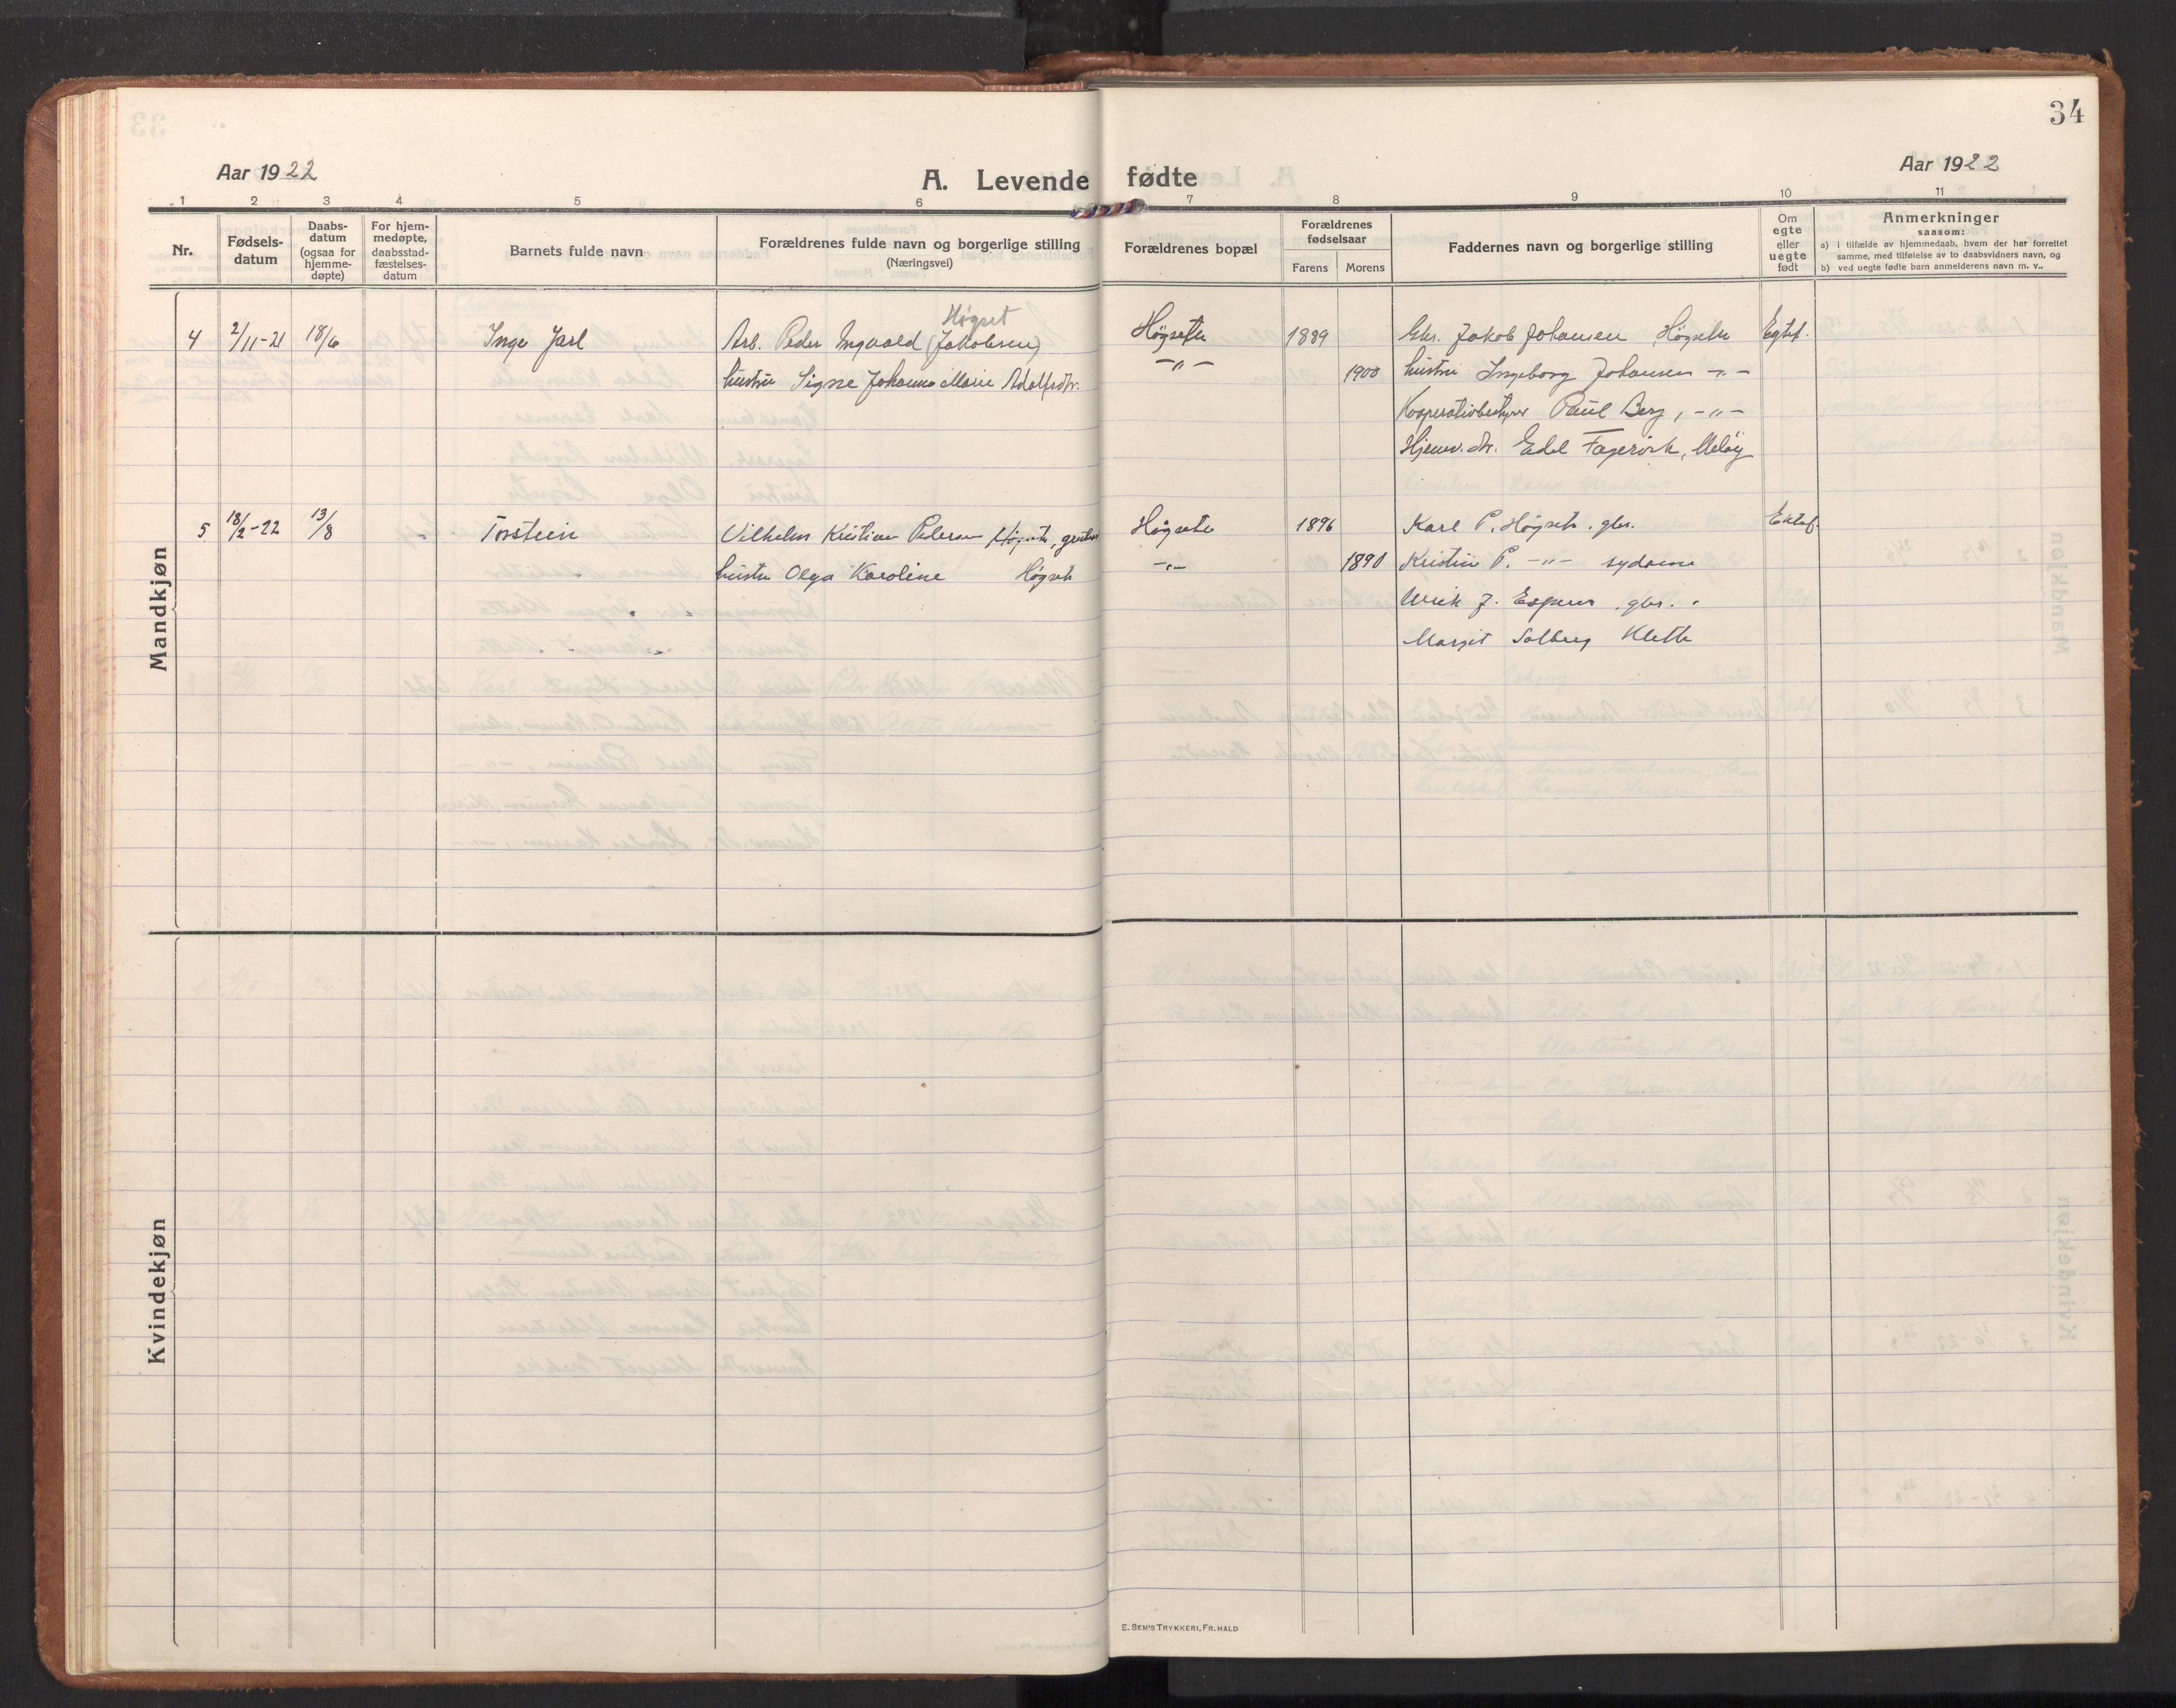 34
Aar 1922
A. Levende fødte
Aar 1922
1 2 3 4 5 6 7 8 9 10 11
Nr.
Fødsels-
datum
Daabs-
datum
(ogsaa for
hjemme-
døpte)
For hjem-
medøpte,
daabsstad-
fæstelses-
datum
Barnets fulde navn
Forældrenes fulde navn og borgerlige stilling
(Næringsvei)
Forældrenes bopæl
Forældrenes
fødselsaar
Farens Morens
Faddernes navn og borgerlige stilling
Om
egte
eller
uegte
født
Anmerkninger
saasom:
a) i tilfælde av hjemmedaab, hvem der har forrettet
samme, med tilføielse av to daabsvidners navn, og
b) ved uegte fødte barn anmelderens navn m. v..
Mandkjøn
Høgset
4 2/11-21 18/6 Inge Jarl Arb. Peder Ingvald (Jakobsen) Høgsete 1889 Gbr. Jakob Johansen Høgsete Egtef.
hustru Signe Johanna Marie Adolfsdtr. -"- 1900 hustru Ingeborg Johansen -"-
Kooperativbestyrer Paul Berg, -"-
Hjemv. dtr. Edel Fagervik, Meløy
5 18/2-22 13/8 " Torstein Vilhelm Kristian Pedersen Høgsete, Høgsete 1896 Karl P. Høgset. gbr. Ektef.
hustru Olga Karoline Høgset -"- 1890 Kristin P. -"- sydame
Ulrik J. Espnes, gbr. "
Margit Solberg Klette
Kvindekjøn
E. SEM'S TRYKKERI, FR.HALD